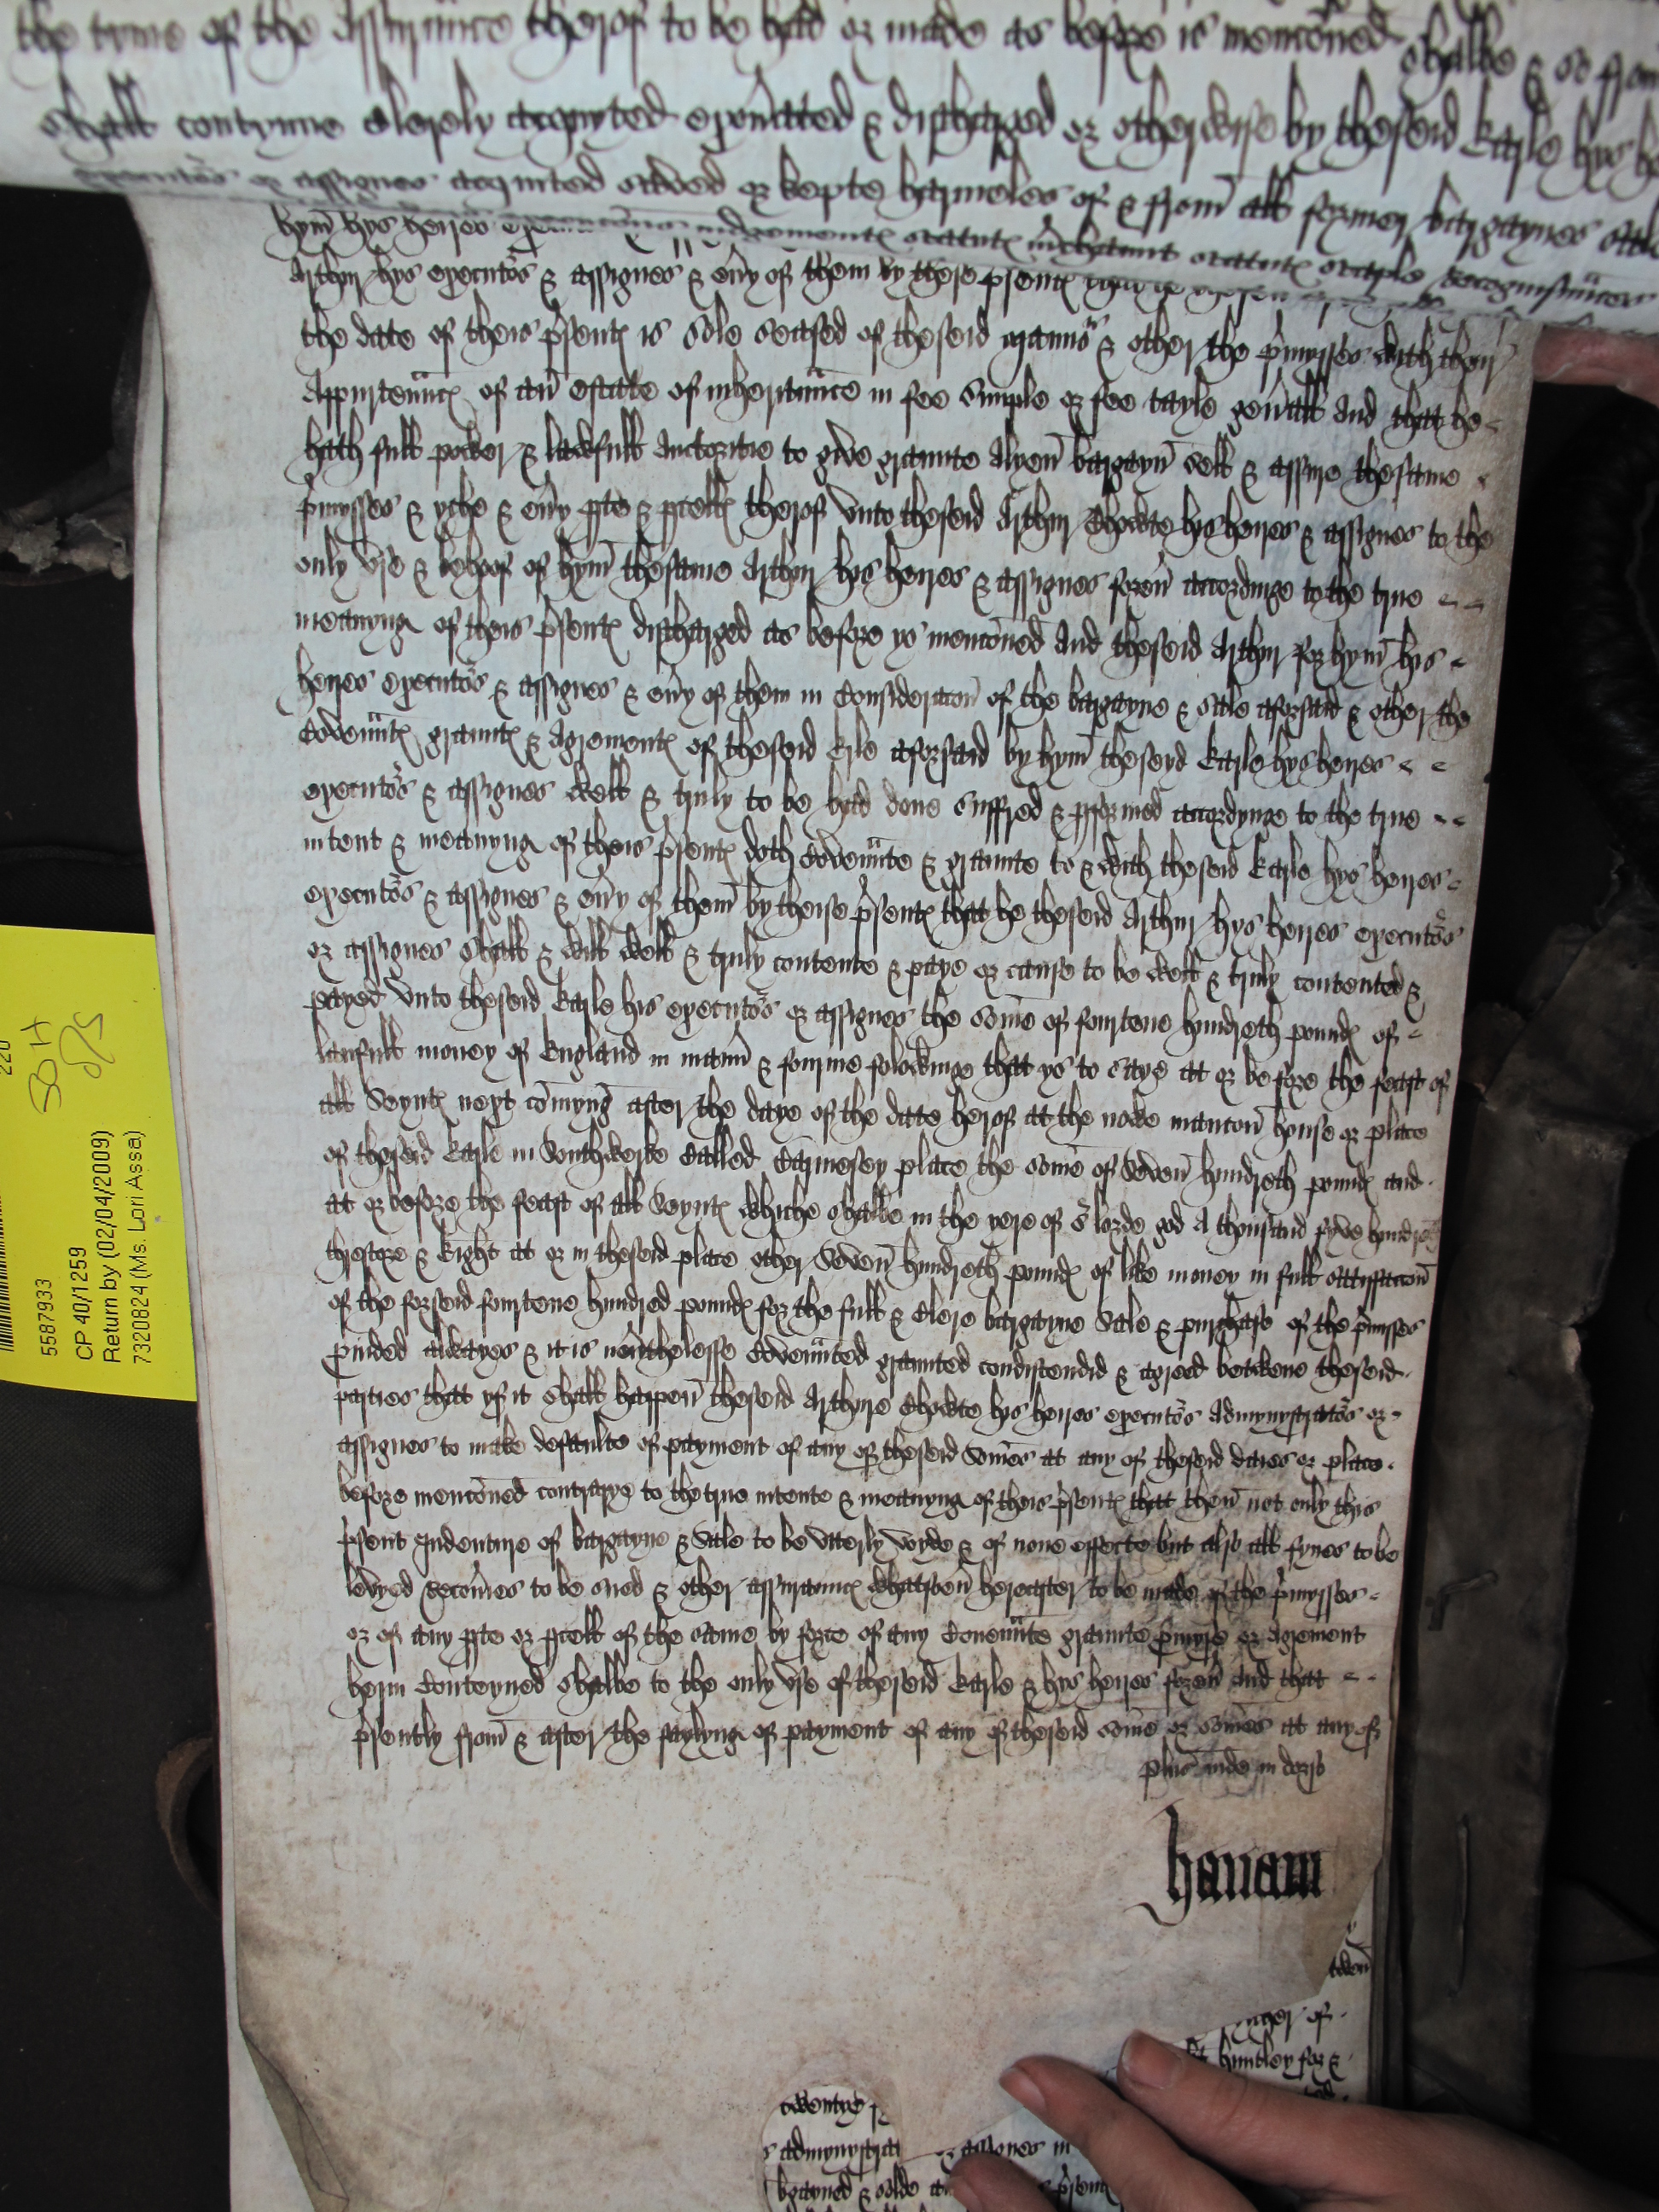 the tyme of the assuraunce therof to be had or made as before is menconed shalbe & so from
shall contynue clerely acquyted exonated & discharged or otherwise by theseid Earle hys he
executors or assignes acquited saved or kepte harmeles of & from all former bargaynes sale
hym hys heires judgomente statute merchaunt statute staple Recognisaunces
Arthur hys executors & assignes & eny of them by these psente
the date of theis psente is sole seased of theseid manno's & other the pmysses with ther
Appurtenunce of an estate of inheritaunce in fee Simple or fee tayle genall And that he
hath full power & lawfull Auctoritie to give graunte Alyen bargayn sell & assure thesame
pmysses & yche & eny pte & pcell therof Unto theseid Arthur Chowte hys heires & assignes to the
only use & behoof of hym thesame Arthur hys heires & assignes foreu accordinge to the true
meanynge of theis psente discharged as before ys menconed And theseid Arthur for hym hys
heires executors & assignes & eny of them in Consideracon of the bargayne & sale aforsaid & other the
Covenunte graunte & Agremente of theseid Erle aforsaid by hym theseyd Earle hys heires
executors & assignes well & truly to be had done suffred & pformed accordynge to the true
intent & meanynge of theis psente doth Covenunte & graunte to & with theseid Earle hys heires
executors & assignes & eny of them by theise psente that he theseid Arthur hys heires executors
or assignes shall & will well & truly contente & paye or cause to be well & truly contented &
payed Unto theseid Earle his executors or assignes the some of fourtene hundreth pounde of
laufull money of England in mann & fourme folowinge that ys to saye at or before the feast of
all Seynte next comyng after the daye of the date herof at the nowe mancon house or place
of theseid Earle in Southwerke Called place the some of Seven hundreth pounde and
at or before the feast of all Seynte whiche shalbe in the yere of o lorde god A thousand fyve hundreth
threscore & Eight at or in theseid place other Seven hundreth pounde of like money in full satisfaccon
of the forseid fourtene hundred pounde for the full & Clere bargayne Sale & purchase of the pmisses
pvided alwayes & it is neuthelesse Covenunted graunted condiscendid & agreed betwene theseid
parties that yf it shall happen theseid Arthure Chowte hys heires executors Admynystrators or
assignes to make defaulte of payment of any of theseid Somes at any of theseid daies or place
before menconed contrarye to the true intente & meanynge of theis psente that then not only this
psent Indenture of bargayne & Sale to be Utterly voyde & of none effecte but also all fynes to be
levyed Recoues to be sued & other assuraunce whatsoeu hereafter to be made of the pmysses
or of any pte or pcell of the same by force of any Covenunte graunte pmyse or Agrement
herin Conteyned shalbe to the only use of theseid Earle & hys heires foreu And that
psently from & after the faylynge of payment of any of theseid some or somes at any of
plus inde in dorso
hanam
twen
of
huntley for &
twentye
admynystra
assignes in
bgayned & solde psente
220
5587933
CP 40/1259
Return by (02/04/2009)
7320824 (Ms. Lori Assa)